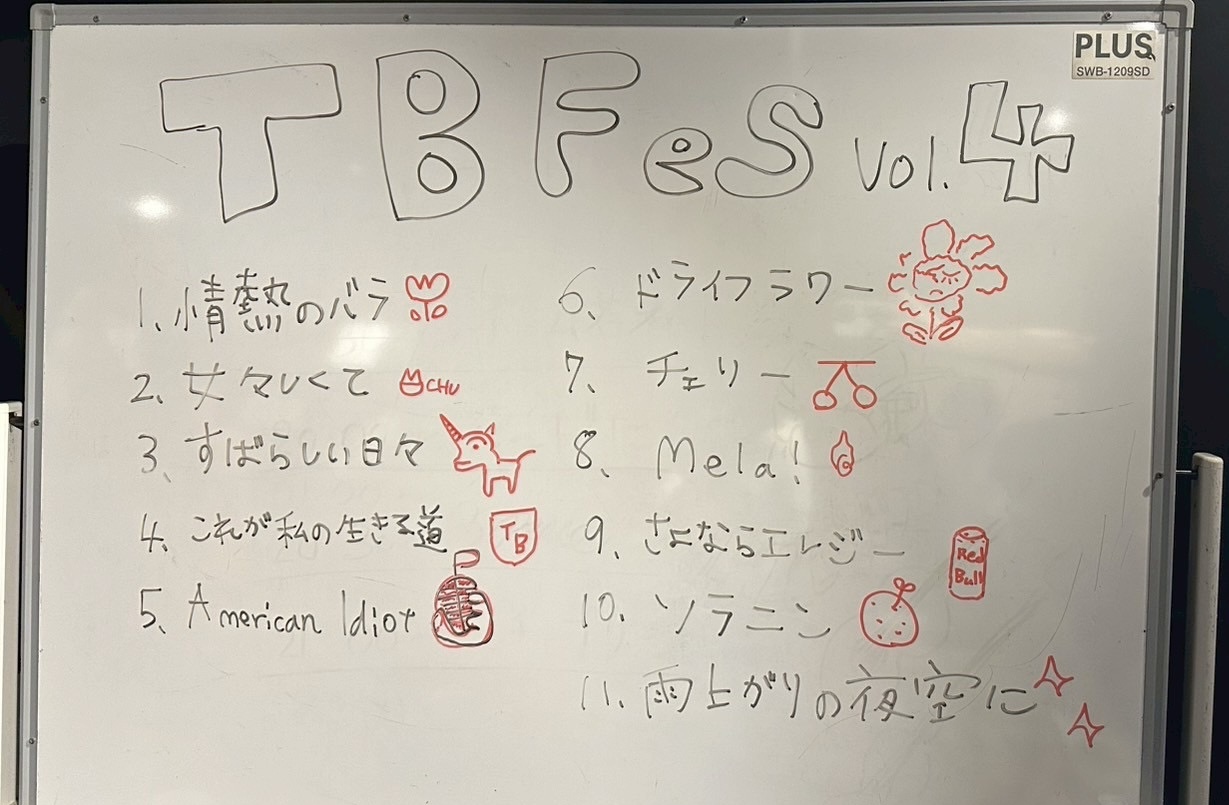 PLUS
SWB-1209SD
TBFeS Vol.4
1、情熱のバラ
2、女々しくて
CHU
3、すばらしい日々
4、これが私の生きる道
TB
5、American Idiot
6、ドライフラワー
7、チェリー
8、Mela!
9、さよならエレジー
Red
Bull
10、ソラニン
11、雨上がりの夜空に